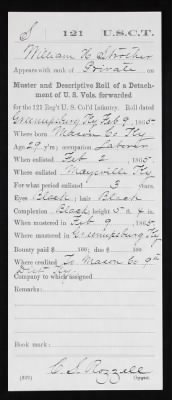 S 121 U.S.C.T.
William H Strother
Appears with rank of Private on
Muster and Descriptive Roll of a Detach-
ment of U. S. Vols. forwarded
for the 121 Reg't U. S. Col'd Infantry. Roll dated
Greenupsburg Ky Feb 9, 1865
Where born Mason Co Ky
Age 29 y'rs; occupation Laborer
When enlisted Feb 2, 1865
Where enlisted Maysville Ky
For what period enlisted 3 years.
Eyes Black; hair Black
Complexion Black; height 5 ft. 4 in.
When mustered in Feb 9, 1865
Where mustered in Greenupsburg Ky
Bounty paid $ 100; due $ 100
Where credited To Mason Co 9th
Dist Ky
Company to which assigned
Remarks:
Book mark:
C. S. Rozzell
Copyist.